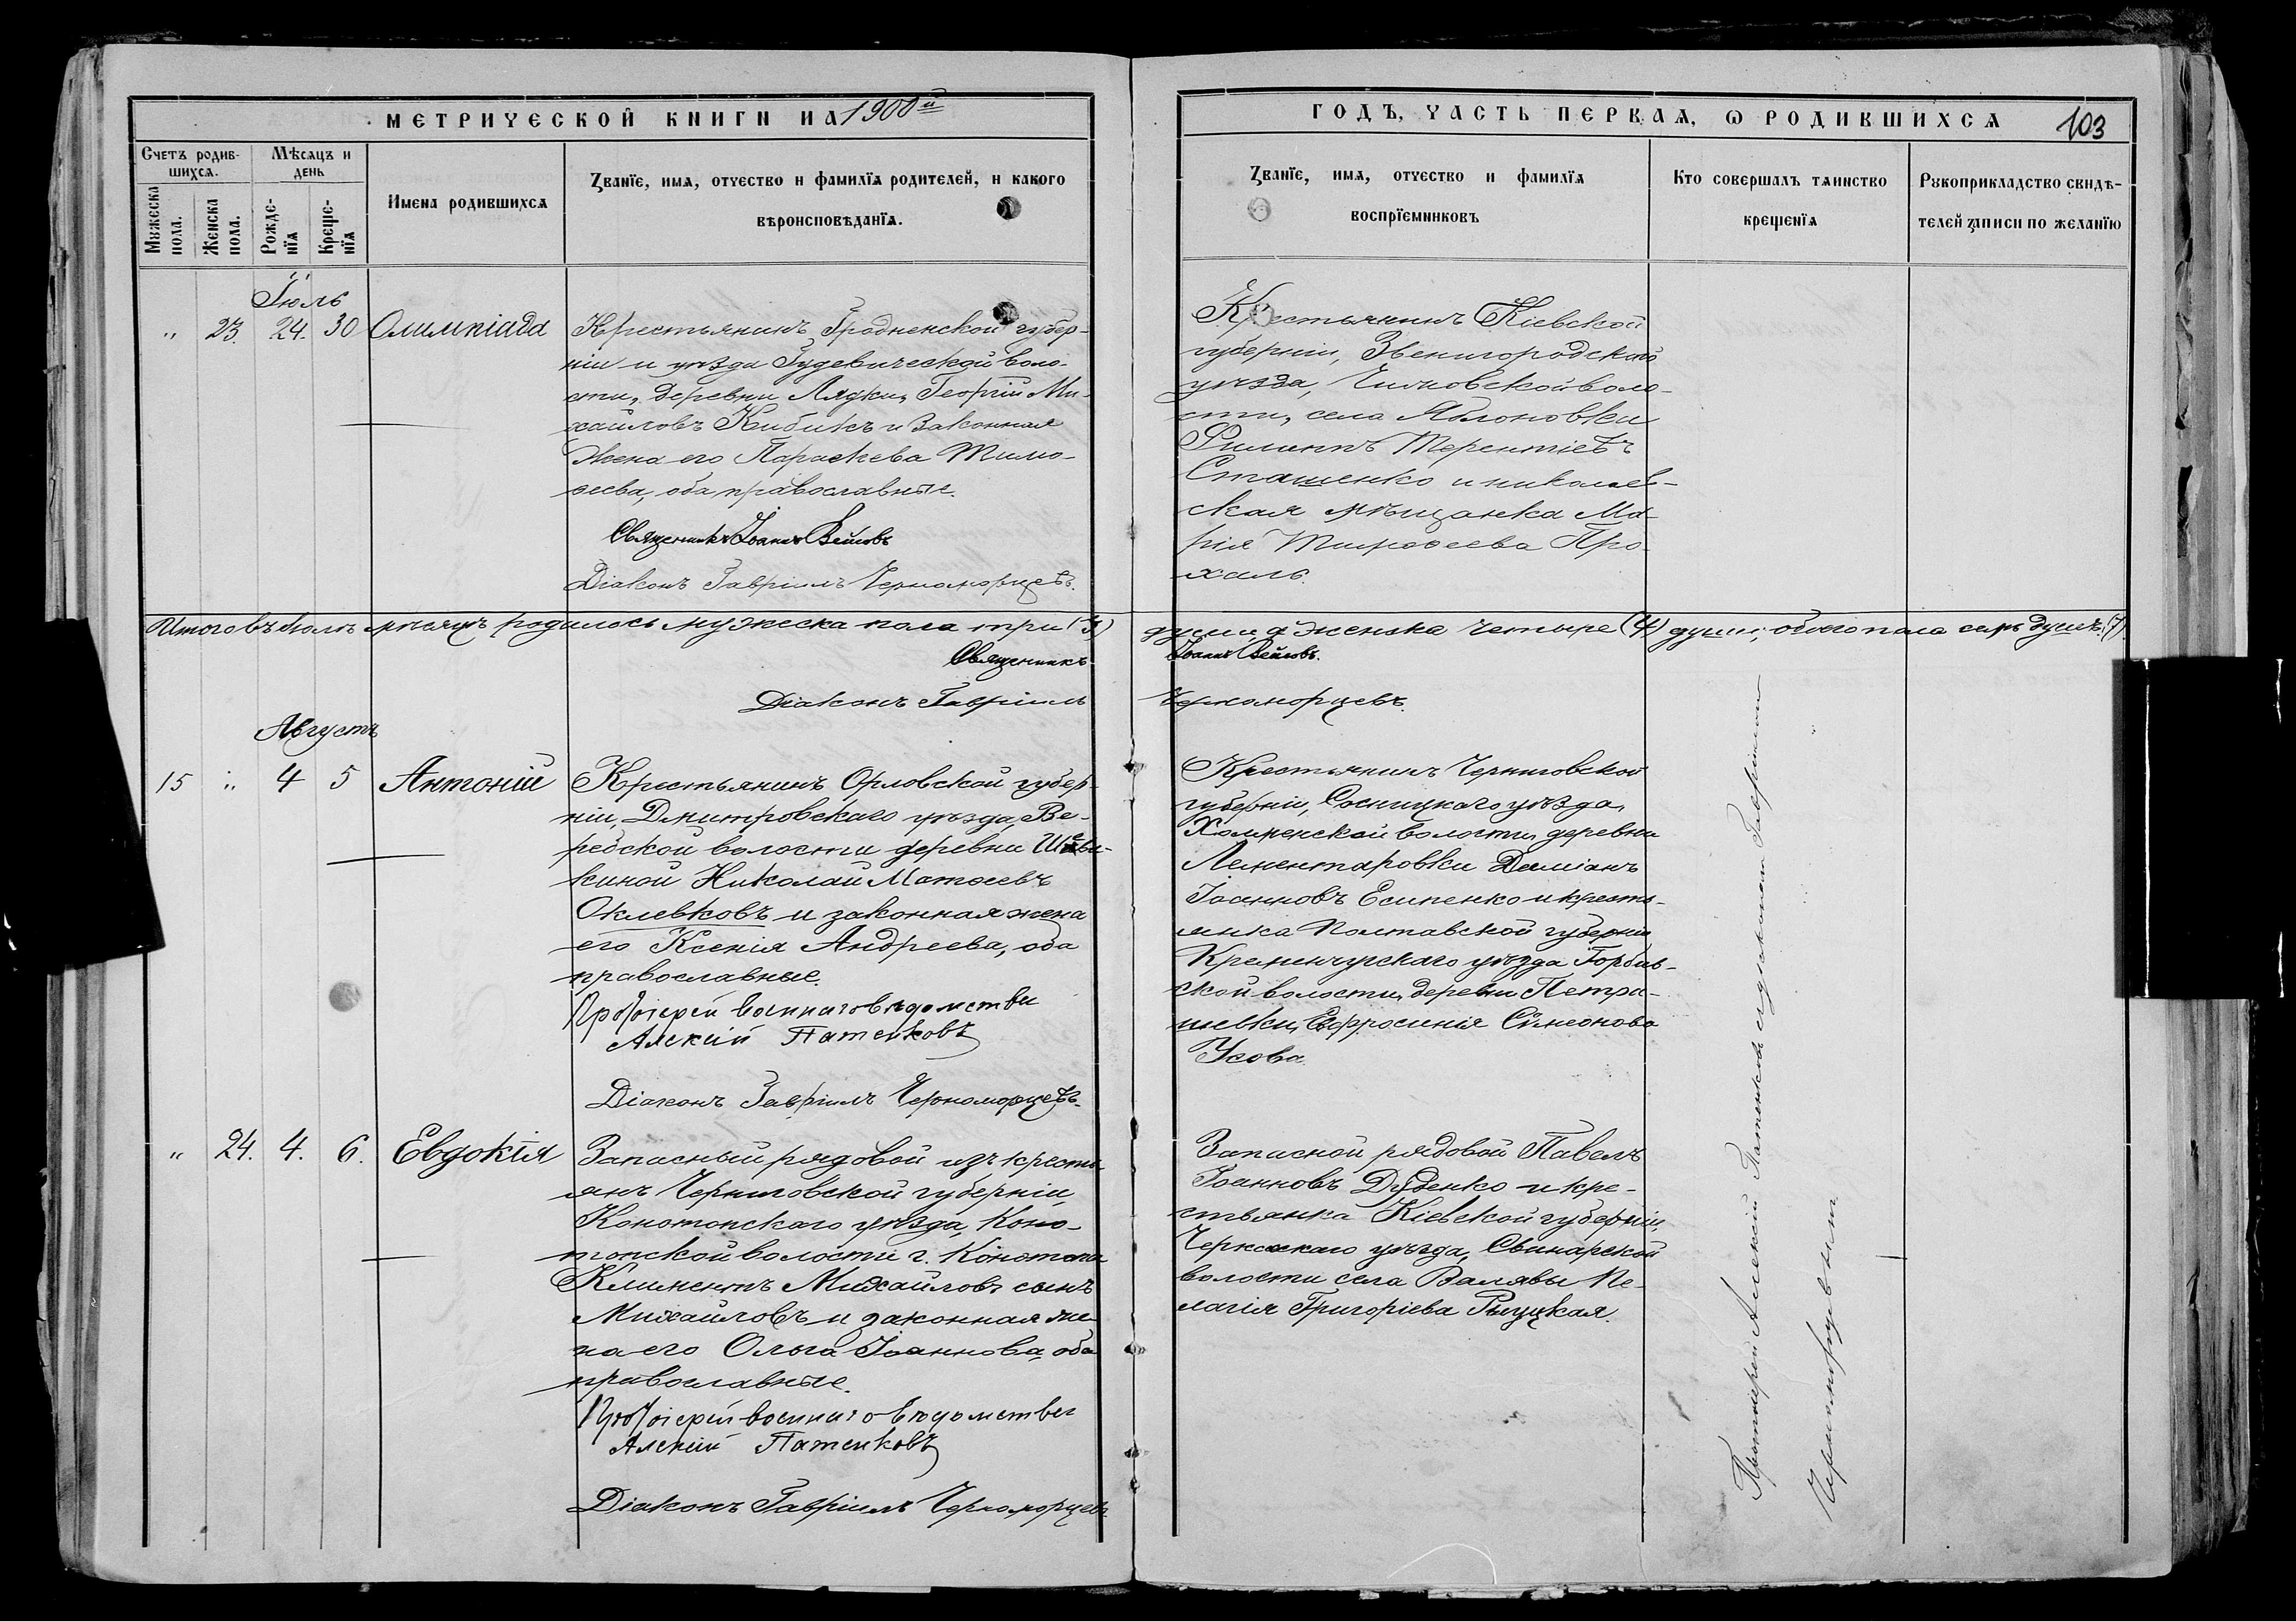 МЕТРИЧЕСКОЙ КНИГИ НА 1900й
ГОДЪ, ЧАСТЬ ПЕРВАЯ, Ѡ РОДИВШИХСЯ
103
Счетъ родив-
шихся.
Мѣсяцъ и
день
Мужеска
пола.
Женска
пола.
Рожде-
нія
Креще-
нія
Имена родившихся
Званіе, имя, отчество и фамилія родителей, и какого
вѣроисповѣданія.
Званіе, имя, отчество и фамилія
воспріемниковъ
Кто совершалъ таинство
крещенія
Рукоприкладство свидѣ-
телей записи по желанію
Іюль
" 23. 24. 30 Олимпіада
Крестьянинъ Гродненской губер-
ніи и уѣзда Гудевической воло-
сти, деревни Лядки, Георгій Ми-
хайловъ Кибикъ и законная
жена его Параскева Тимо-
ѳеева, оба православные.
Священникъ Іоаннъ
Діаконъ Гавріилъ Черноморцевъ.
Крестьянинъ Кіевской
губерніи, Звенигородскаго
уѣзда, воло-
сти, села Яблоновки
Филиппъ Терентіевъ
Сташенко и николаев-
ская мѣщанка Ма-
рія Тимоѳеева Про-
халь.
Итого въ Іюлѣ мѣсяцѣ родилось мужеска пола три (3) души, а женска четыре (4) души; обоего пола семь душъ. (7)
Священникъ Іоаннъ
Діаконъ Гавріилъ Черноморцевъ.
Августъ
15 " 4 5 Антоній
Крестьянинъ Орловской губер-
ніи, Дмитровскаго уѣзда, Ве-
ребской волости деревни
киной Николай Матѳеевъ
Оклевковъ и законная жена
его Ксенія Андреева, оба
православные.
Протоіерей военнаго вѣдомства
Алексій Патенковъ
Діаконъ Гавріилъ Черноморцевъ.
Крестьянинъ Черниговской
губерніи, Сосницкаго уѣзда,
Холменской волости, деревни
Лементаровки Даміанъ
Іоанновъ Есипенко и кресть-
янка Полтавской губерніи
Кременчугскаго уѣзда Горбив-
ской волости, деревни Петра-
шевки, Евфросинія Симеонова
Усова.
" 24. 4. 6. Евдокія
Запасный рядовой изъ кресть-
янъ Черниговской губерніи,
Конотопскаго уѣзда, Коно-
топской волости г. Конотопа
Климентъ Михайловъ сынъ
Михайловъ и законная же-
на его Ольга Іоаннова, оба
православные.
Протоіерей военнаго вѣдомства
Алексій Патенковъ
Діаконъ Гавріилъ Черноморцевъ.
Запасной рядовой Павелъ
Іоанновъ Дуденко и кре-
стьянка Кіевской губерніи,
Черкасскаго уѣзда, Свинарской
волости села Валявы Пе-
лагія Григоріева Рыуцкая.
Протоіерей Алексій Патенковъ съ діакономъ Гавріиломъ
Черноморцевымъ